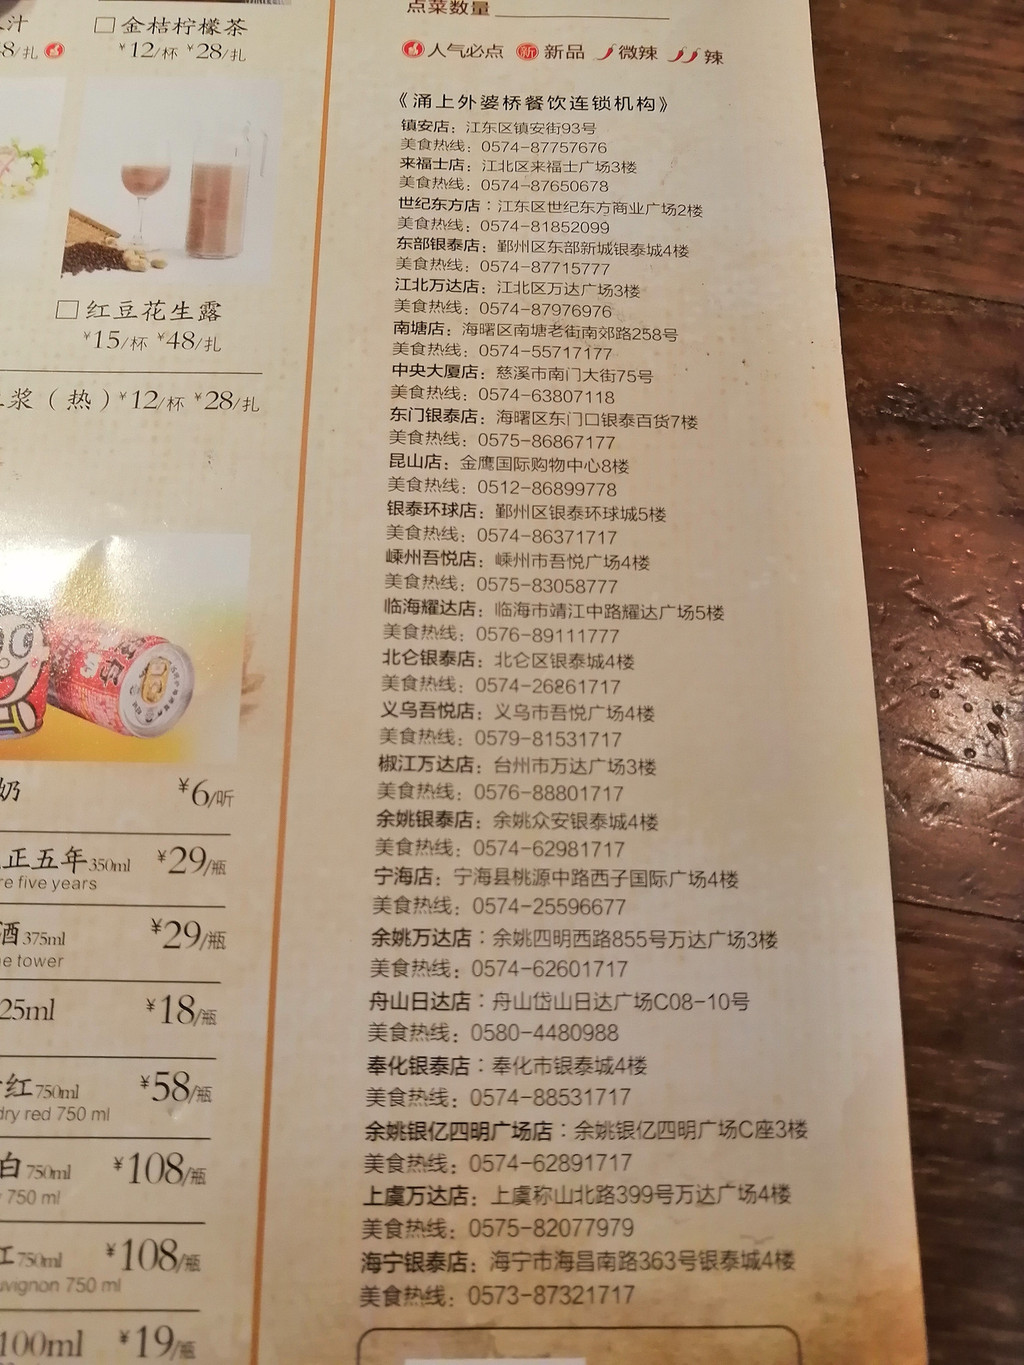 汁
8/扎
□ 金桔柠檬茶
¥12/杯 ¥28/扎
□ 红豆花生露
¥15/杯 ¥48/扎
浆（热）¥12/杯 ¥28/扎
奶 ¥6/听
正五年350ml ¥29/瓶
re five years
酒375ml ¥29/瓶
e tower
25ml ¥18/瓶
红750ml ¥58/瓶
dry red 750 ml
白750ml ¥108/瓶
750 ml
红750ml ¥108/瓶
uvignon 750 ml
100ml ¥19/瓶
点菜数量
人气必点 新 新品 微辣 辣
《涌上外婆桥餐饮连锁机构》
镇安店：江东区镇安街93号
美食热线：0574-87757676
来福士店：江北区来福士广场3楼
美食热线：0574-87650678
世纪东方店：江东区世纪东方商业广场2楼
美食热线：0574-81852099
东部银泰店：鄞州区东部新城银泰城4楼
美食热线：0574-87715777
江北万达店：江北区万达广场3楼
美食热线：0574-87976976
南塘店：海曙区南塘老街南郊路258号
美食热线：0574-55717177
中央大厦店：慈溪市南门大街75号
美食热线：0574-63807118
东门银泰店：海曙区东门口银泰百货7楼
美食热线：0575-86867177
昆山店：金鹰国际购物中心8楼
美食热线：0512-86899778
银泰环球店：鄞州区银泰环球城5楼
美食热线：0574-86371717
嵊州吾悦店：嵊州市吾悦广场4楼
美食热线：0575-83058777
临海耀达店：临海市靖江中路耀达广场5楼
美食热线：0576-89111777
北仑银泰店：北仑区银泰城4楼
美食热线：0574-26861717
义乌吾悦店：义乌市吾悦广场4楼
美食热线：0579-81531717
椒江万达店：台州市万达广场3楼
美食热线：0576-88801717
余姚银泰店：余姚众安银泰城4楼
美食热线：0574-62981717
宁海店：宁海县桃源中路西子国际广场4楼
美食热线：0574-25596677
余姚万达店：余姚四明西路855号万达广场3楼
美食热线：0574-62601717
舟山日达店：舟山岱山日达广场C08-10号
美食热线：0580-4480988
奉化银泰店：奉化市银泰城4楼
美食热线：0574-88531717
余姚银亿四明广场店：余姚银亿四明广场C座3楼
美食热线：0574-62891717
上虞万达店：上虞称山北路399号万达广场4楼
美食热线：0575-82077979
海宁银泰店：海宁市海昌南路363号银泰城4楼
美食热线：0573-87321717